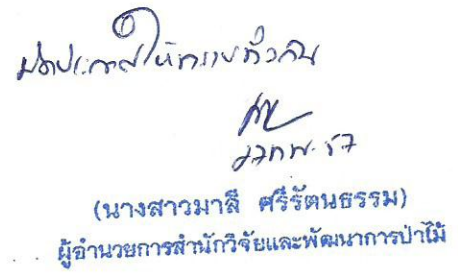 ปิดประกาศให้ทราบทั่วกัน
27 กพ. 57
(นางสาวมาลี ศรีรัตนธรรม)
ผู้อำนวยการสำนักวิจัยและพัฒนาการป่าไม้